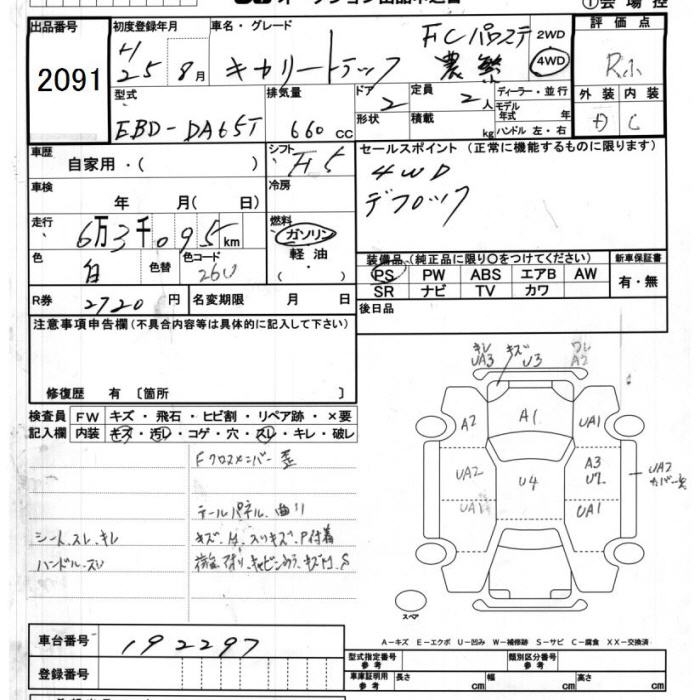 出品番号
2091
初度登録年月
H 25 年 8月
車名・グレード
キャリートラック
FCパワステ
農繁
2WD
4WD
評価点
R
外装 内装
D C
型式
EBD-DA65T
排気量
660 cc
ドア 2
形状
定員 2人
積載 kg
ディーラー・並行
モデル年式 年
ハンドル 左・右
車歴
自家用・( )
シフト F5
セールスポイント (正常に機能するものに限ります)
4WD
デフロック
車検
年 月( 日)
冷房
走行
6万3千095km
燃料
ガソリン
軽油
( ・ )
色
白
色替
色コード
26U
装備品 (純正品に限り○をつけてください)
PS PW ABS エアB AW
SR ナビ TV カワ
新車保証書
有・無
R券 2720 円
名変期限 月 日
後日品
注意事項申告欄(不具合内容等は具体的に記入して下さい)
修復歴 有 〔箇所 〕
検査員記入欄
FW キズ・飛石・ヒビ割・リペア跡・×要
内装 キズ・汚レ・コゲ・穴・スレ・キレ・破レ
Fクロスメンバー歪
テールパネル曲り
シート、スレ、キレ
ハンドル、スレ
キズ、凹、スリキズ、P付着
キレ UA3
キズ U3
ワレ A2
A2
A1
UA1
UA2
U4
A3
U2
UA2
UA1
UA1
スペア
A-キズ E-エクボ U-凹み W-補修跡 S-サビ C-腐食 XX-交換済
車台番号
192297
登録番号
型式指定番号 参考
類別区分番号 参考
車庫証明用 参考
長さ cm
幅 cm
高さ cm